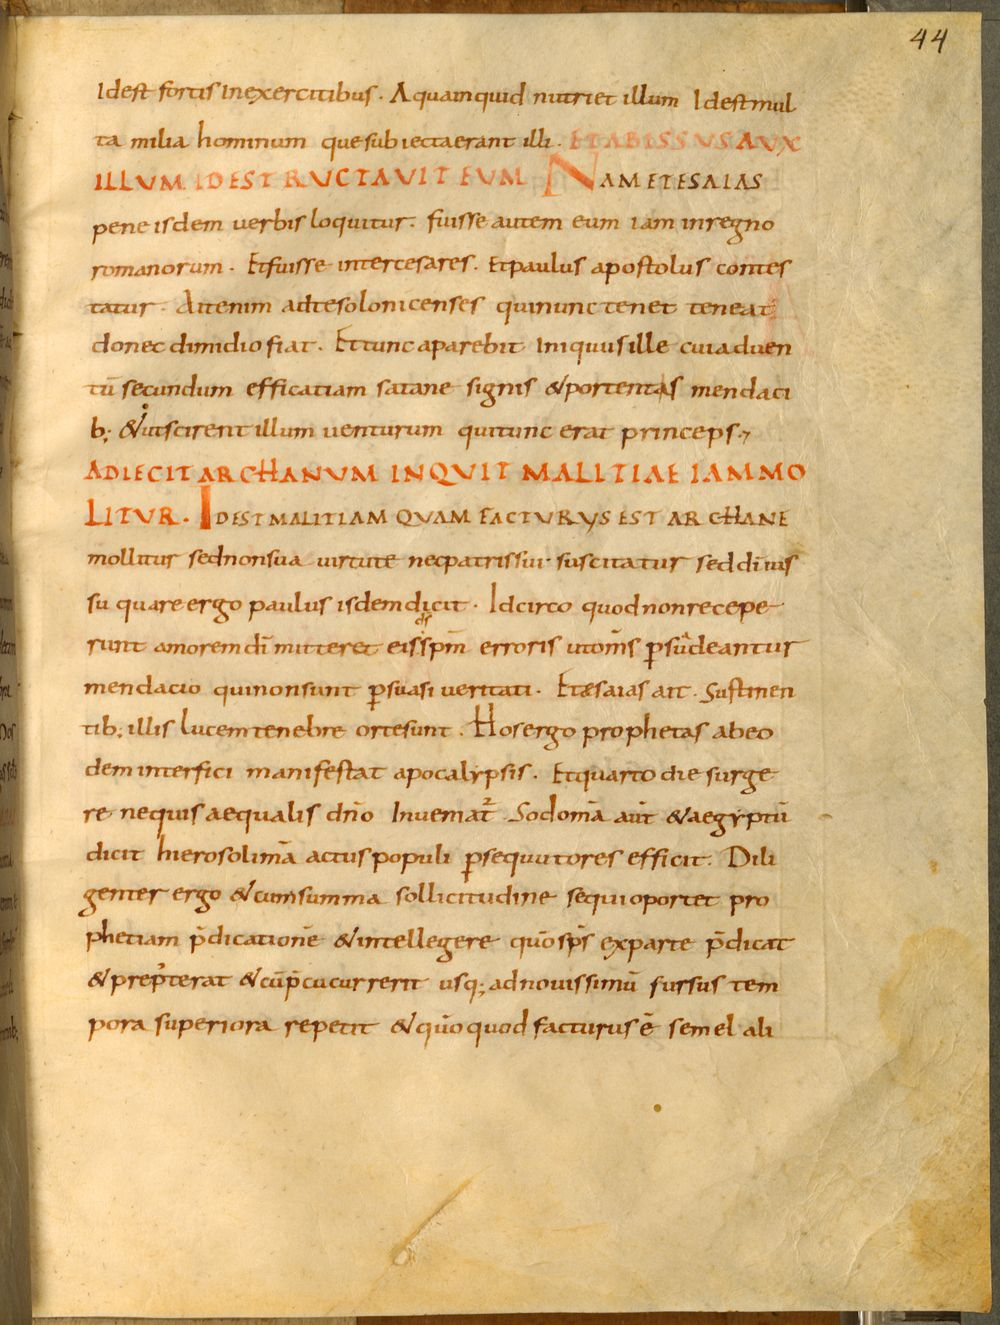 44
Idest fortis Inexercitibus. Aquamquid nutriet illum Idestmul
ta milia hominum quesubiectaerant illi. ETABISSUSAUX
ILLUM IDEST RUCTAVIT EUM NAMETESAIAS
pene isdem verbis loquitur. fuisse autem eum iam inregno
romanorum. Etfuisse intercesares. Etpaulus apostolus contes
tatur. Aitenim adtesolonicenses quinunc tenet teneat
donec dimidio fiat. Ettunc aparebit Iniquusille cuiadven
tū secundum efficatiam satane signis &portentis mendaci
b; &utscirent illum venturum quitunc erat princeps.
ADIECIT ARCHANUM INQUIT MALITIAE IAMMO
LITUR. IDESTMALITIAM QUAM FACTURUS EST ARCHANE
mollitur sednonsua virtute necpatrissui. suscitatur seddiius
su quare ergo paulus isdem dicit. Idcirco quodnonrecepe
runt amorem dī mitteret eis spm̄ erroris utom̄s p̄suadeantur
mendacio quinonsunt p̄suasi veritati. Etesaias ait. Sustinen
tib; illis lucem tenebre ortesunt. Hosergo prophetas abeo
dem interfici manifestat apocalypsis. Etquarto die surge
re nequis aequalis dn̄o Inveniat̄. Sodomā aut̄ &aegyptū
dicit hierosolimā actus populi p̄sequutores efficit. Dili
genter ergo &cumsumma sollicitudine sequi oportet pro
phetiam p̄dicationē &intellegere quōsps̄ exparte p̄dicat
&prepterat &cūp̄cucurrerit usq; adnouissimū sursus tem
pora superiora repetit &quōquod facturus ē semel ali